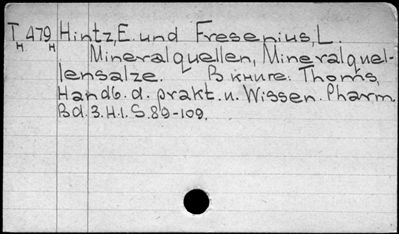 T 479 Hintz, E. und Fresenius, L.
н н Mineralquellen, Mineralquel-
lensalze. В книге: Thoms,
Handb. d. prakt. u. Wissen. Pharm.
Bd. 3. H. 1. S. 89-109.